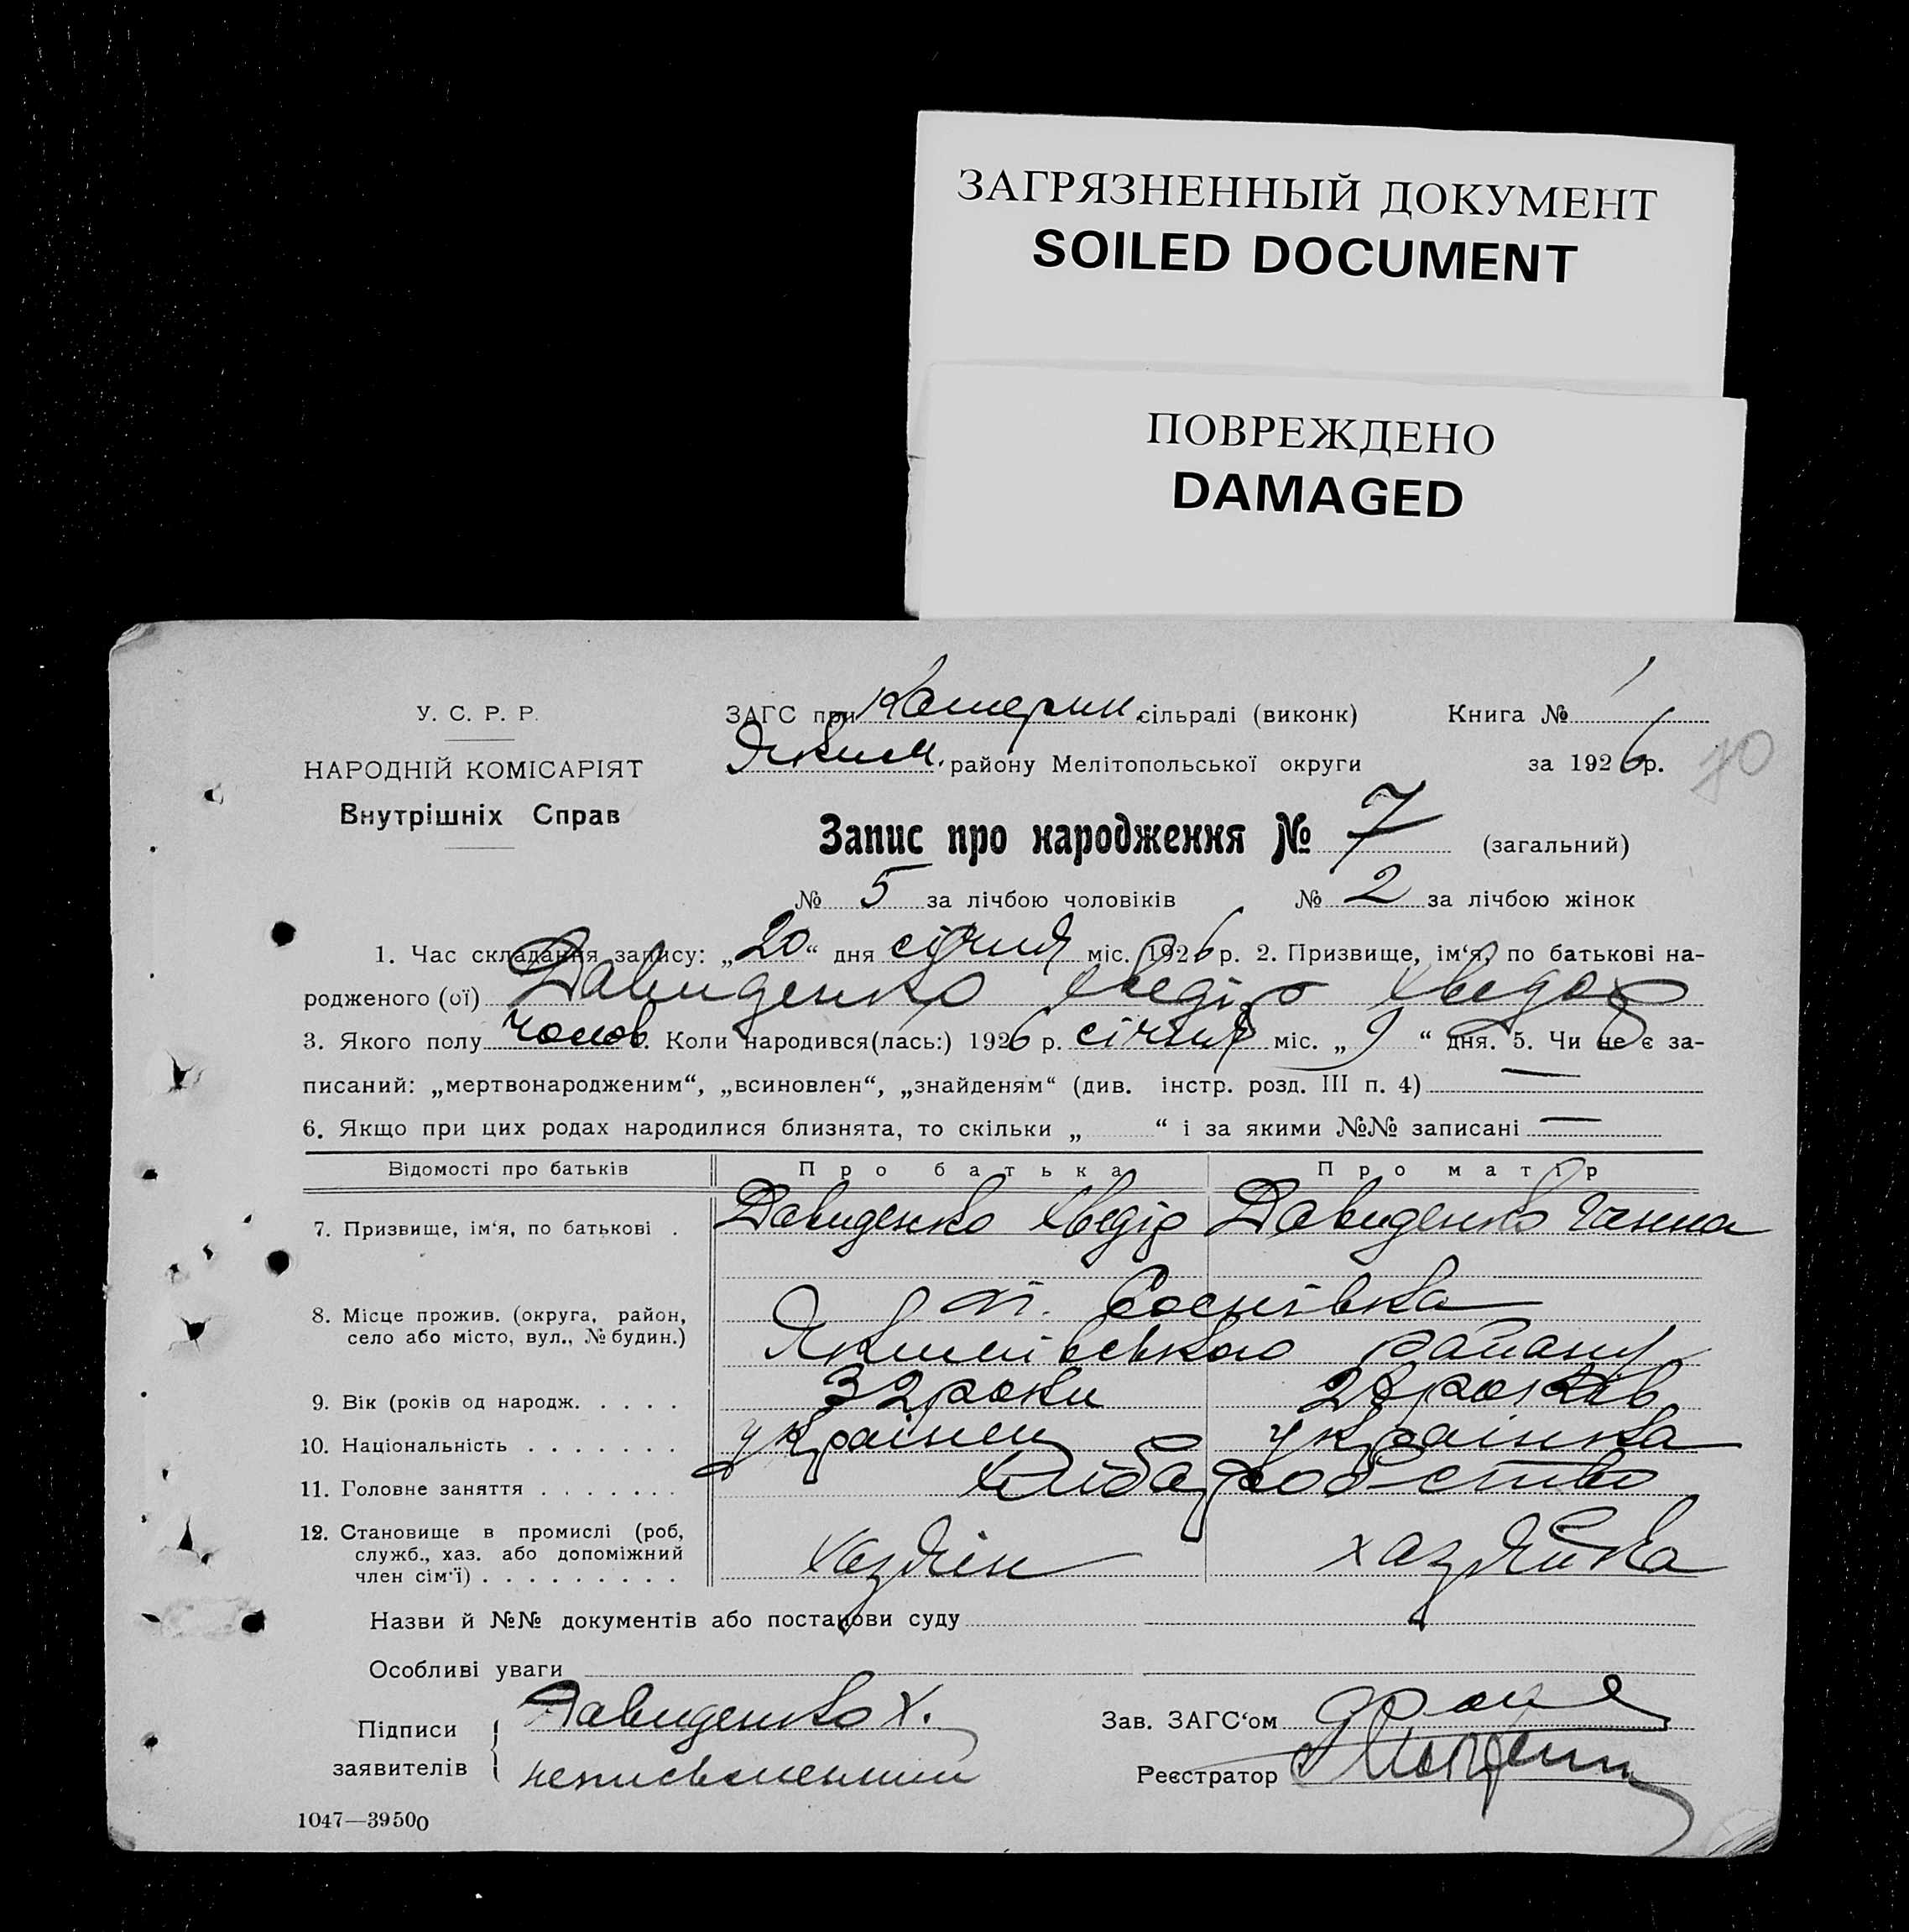 ЗАГРЯЗНЕННЫЙ ДОКУМЕНТ
SOILED DOCUMENT
ПОВРЕЖДЕНО
DAMAGED
У. С. Р. Р.
НАРОДНІЙ КОМІСАРІЯТ
Внутрішніх Справ
ЗАГС при Катерин. сільраді (виконк) Книга № 1
Яким. району Мелітопольської округи за 1926 р.
70
Запис про народження № 7 (загальний)
№ 5 за лічбою чоловіків № 2 за лічбою жінок
1. Час складання запису: „20“ дня січня міс. 1926 р. 2. Призвище, ім‘я, по батькові на-
родженого (ої) Давиденко Хведір Хведор
3. Якого полу чолов. Коли народився(лась:) 1926 р. січня міс. „9“ дня. 5. Чи не є за-
писаний: „мертвонародженим“, „всиновлен“, „знайденям“ (див. інстр. розд. III п. 4) —
6. Якщо при цих родах народилися близнята, то скільки „ “ і за якими №№ записані —
Відомості про батьків Про батька Про матір
7. Призвище, ім‘я, по батькові . Давиденко Хведір Давиденко Ганна
8. Місце прожив. (округа, район,
село або місто, вул., № будин.)
Якимівського району
9. Вік (років од народж. . . . . 32 роки років
10. Національність . . . . . . . українец українка
11. Головне заняття . . . . . . . хлібаробство
12. Становище в промислі (роб,
служб., хаз. або допоміжний
член сім‘ї) . . . . . . . . . хазяін хазяйка
Назви й №№ документів або постанови суду
Особливі уваги
Підписи
заявителів
Давиденко Х.
неписьменний
Зав. ЗАГС‘ом
Реєстратор
1047—39500